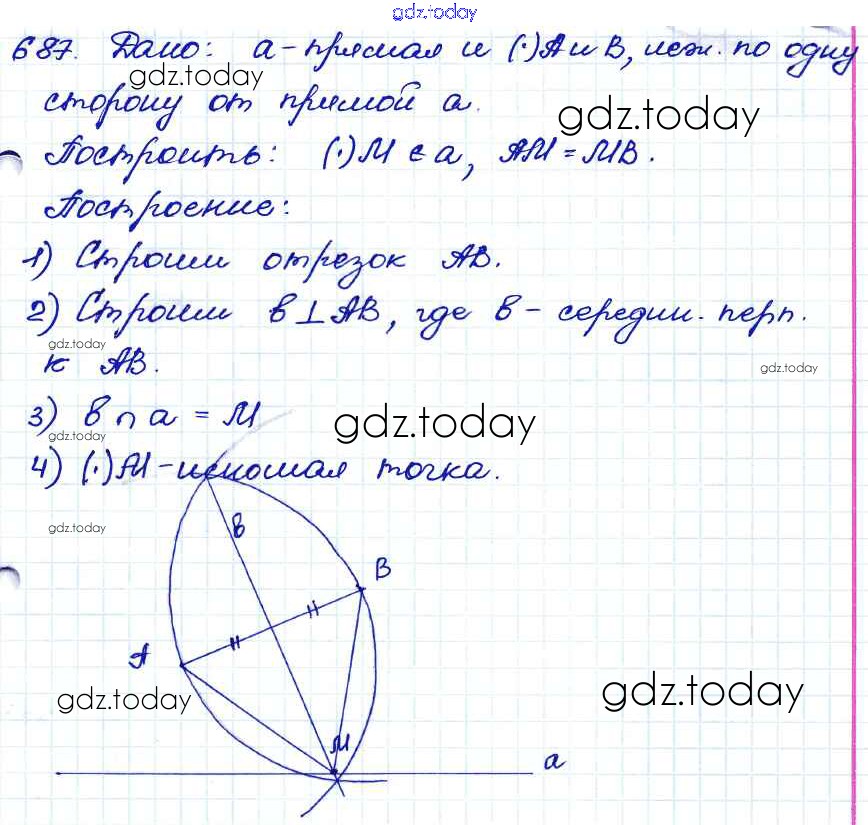 gdz.today
687. Дано: a - прямая и (·)A и B, леж. по одну
gdz.today
сторону от прямой a.
gdz.today
Построить: (·)M ∈ a, AM = MB.
Построение:
1) Строим отрезок AB.
2) Строим в ⊥ AB, где в - середин. перп.
gdz.today
к AB.
gdz.today
3) в ∩ a = M
gdz.today
gdz.today
4) (·)M - искомая точка.
gdz.today
в
B
A
gdz.today
gdz.today
M
a